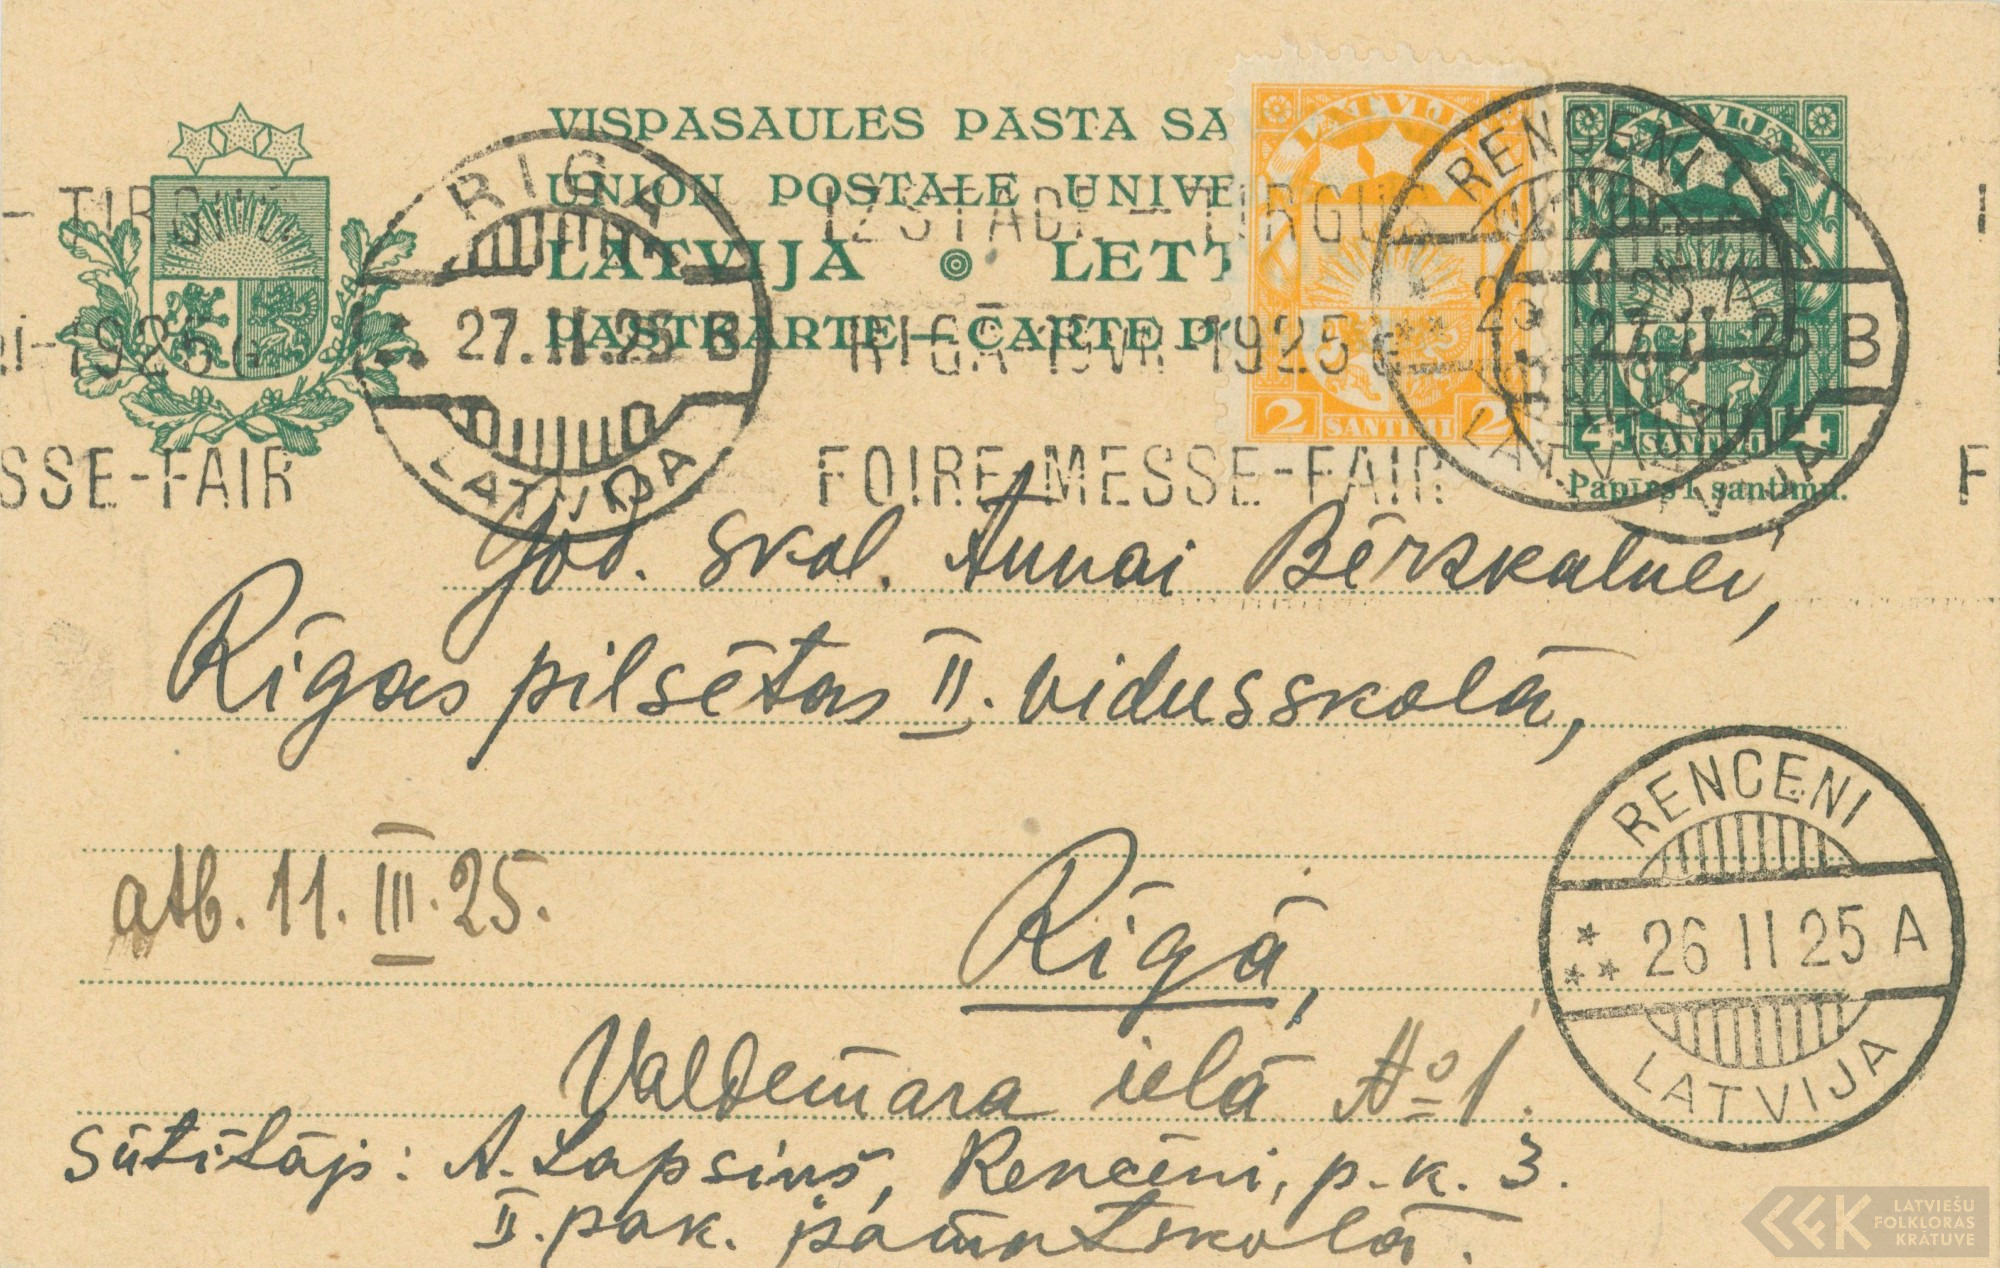 VISPASAULES PASTA SA
UNION POSTALE UNIVE
LATVIJA LETT
PASTKARTE—CARTE P
LATVIJA
2 SANTIMI 2
LATVIJA
4 SANTIMI 4
Papīrs 1 santims.
RIGA
27.II.25 B
LATVIJA
IZSTĀDE — TIRGUS
RIGĀ 1925
FOIRE-MESSE-FAIR
– TIRGUS
1925
SSE-FAIR
F
RENCENI
LATVIJA
27.II.25 B
LATVIJA
God. skol. Annai Bērzkalnei,
Rīgas pilsētas II. vidusskolā,
atb. 11. III. 25.
Rīgā,
Valdemāra ielā № 1.
RENCENI
26 II 25 A
LATVIJA
Sūtītājs: A. Lapsiņš, Rencēni, p. k. 3.
II. pak. pamatskolā.
LATVIEŠU
FOLKLORAS
KRĀTUVE